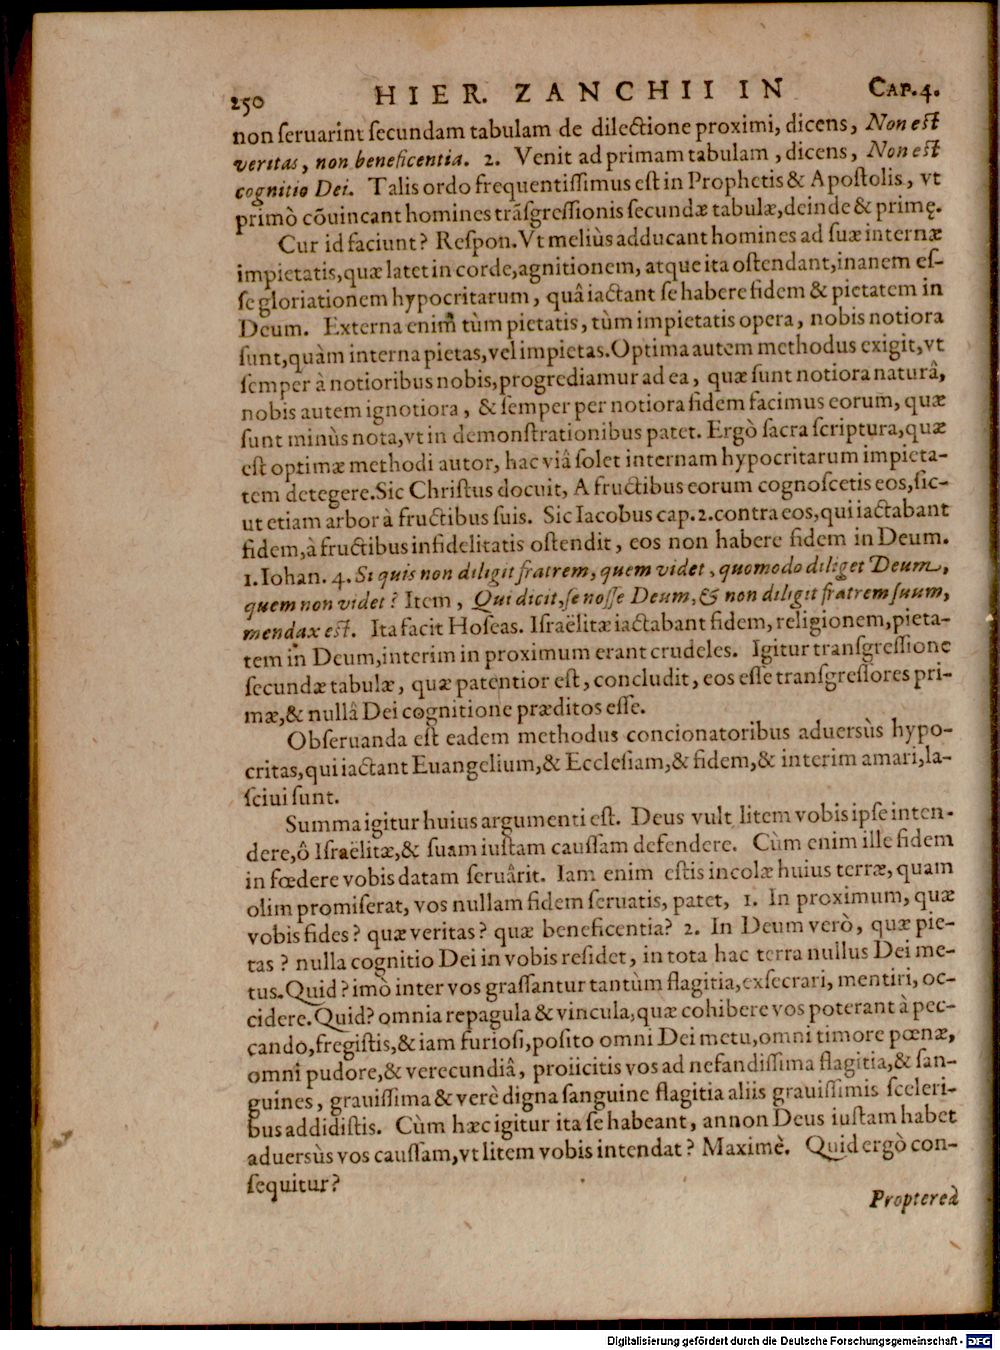 250 HIER. ZANCHII IN CAP. 4.
non ſeruarint ſecundam tabulam de dilectione proximi, dicens, Non eſt
veritas, non beneficentia. 2. Venit ad primam tabulam, dicens, Non eſt
cognitio Dei. Talis ordo frequentiſſimus eſt in Prophetis & Apoſtolis, vt
primò cõuincant homines trãſgreſſionis ſecundæ tabulæ, deinde & primę.
Cur id faciunt? Reſpon. Vt meliùs adducant homines ad ſuæ internæ
impietatis, quæ latet in corde, agnitionem, atque ita oſtendant, inanem eſ-
ſe gloriationem hypocritarum, quâ iactant ſe habere fidem & pietatem in
Deum. Externa enim tùm pietatis, tùm impietatis opera, nobis notiora
ſunt, quàm interna pietas, vel impietas. Optima autem methodus exigit, vt
ſemper à notioribus nobis, progrediamur ad ea, quæ ſunt notiora naturâ,
nobis autem ignotiora, & ſemper per notiora fidem facimus eorum, quæ
ſunt minùs nota, vt in demonſtrationibus patet. Ergò ſacra ſcriptura, quæ
eſt optimæ methodi autor, hac viâ ſolet internam hypocritarum impieta-
tem detegere. Sic Chriſtus docuit, A fructibus eorum cognoſcetis eos, ſic-
ut etiam arbor à fructibus ſuis. Sic Iacobus cap. 2. contra eos, qui iactabant
fidem, à fructibus infidelitatis oſtendit, eos non habere fidem in Deum.
1. Iohan. 4. Si quis non diligit fratrem, quem videt, quomodo diliget Deum,
quem non videt? Item, Qui dicit, ſe noſſe Deum, & non diligit fratrem ſuum,
mendax eſt. Ita facit Hoſeas. Iſraëlitæ iactabant fidem, religionem, pieta-
tem in Deum, interim in proximum erant crudeles. Igitur tranſgreſſione
ſecundæ tabulæ, quæ patentior eſt, concludit, eos eſſe tranſgreſſores pri-
mæ, & nullâ Dei cognitione præditos eſſe.
Obſeruanda eſt eadem methodus concionatoribus aduersùs hypo-
critas, qui iactant Euangelium, & Eccleſiam, & fidem, & interim amari, la-
ſciui ſunt.
Summa igitur huius argumenti eſt. Deus vult litem vobis ipſe inten-
dere, ô Iſraëlitæ, & ſuam iuſtam cauſſam defendere. Cùm enim ille fidem
in fœdere vobis datam ſeruârit. Iam enim eſtis incolæ huius terræ, quam
olim promiſerat, vos nullam fidem ſeruatis, patet, 1. In proximum, quæ
vobis fides? quæ veritas? quæ beneficentia? 2. In Deum verò, quæ pie-
tas? nulla cognitio Dei in vobis reſidet, in tota hac terra nullus Dei me-
tus. Quid? imò inter vos graſſantur tantùm flagitia, exſecrari, mentiri, oc-
cidere. Quid? omnia repagula & vincula, quæ cohibere vos poterant à pec-
cando, fregiſtis, & iam furioſi, poſito omni Dei metu, omni timore pœnæ,
omni pudore, & verecundiâ, proiicitis vos ad nefandiſſima flagitia, & ſan-
guines, grauiſſima & verè digna ſanguine flagitia aliis grauiſſimis ſceleri-
bus addidiſtis. Cùm hæc igitur ita ſe habeant, annon Deus iuſtam habet
aduersùs vos cauſſam, vt litem vobis intendat? Maximè. Quid ergò con-
ſequitur?
Proptereà
Digitalisierung gefördert durch die Deutsche Forschungsgemeinschaft - DFG